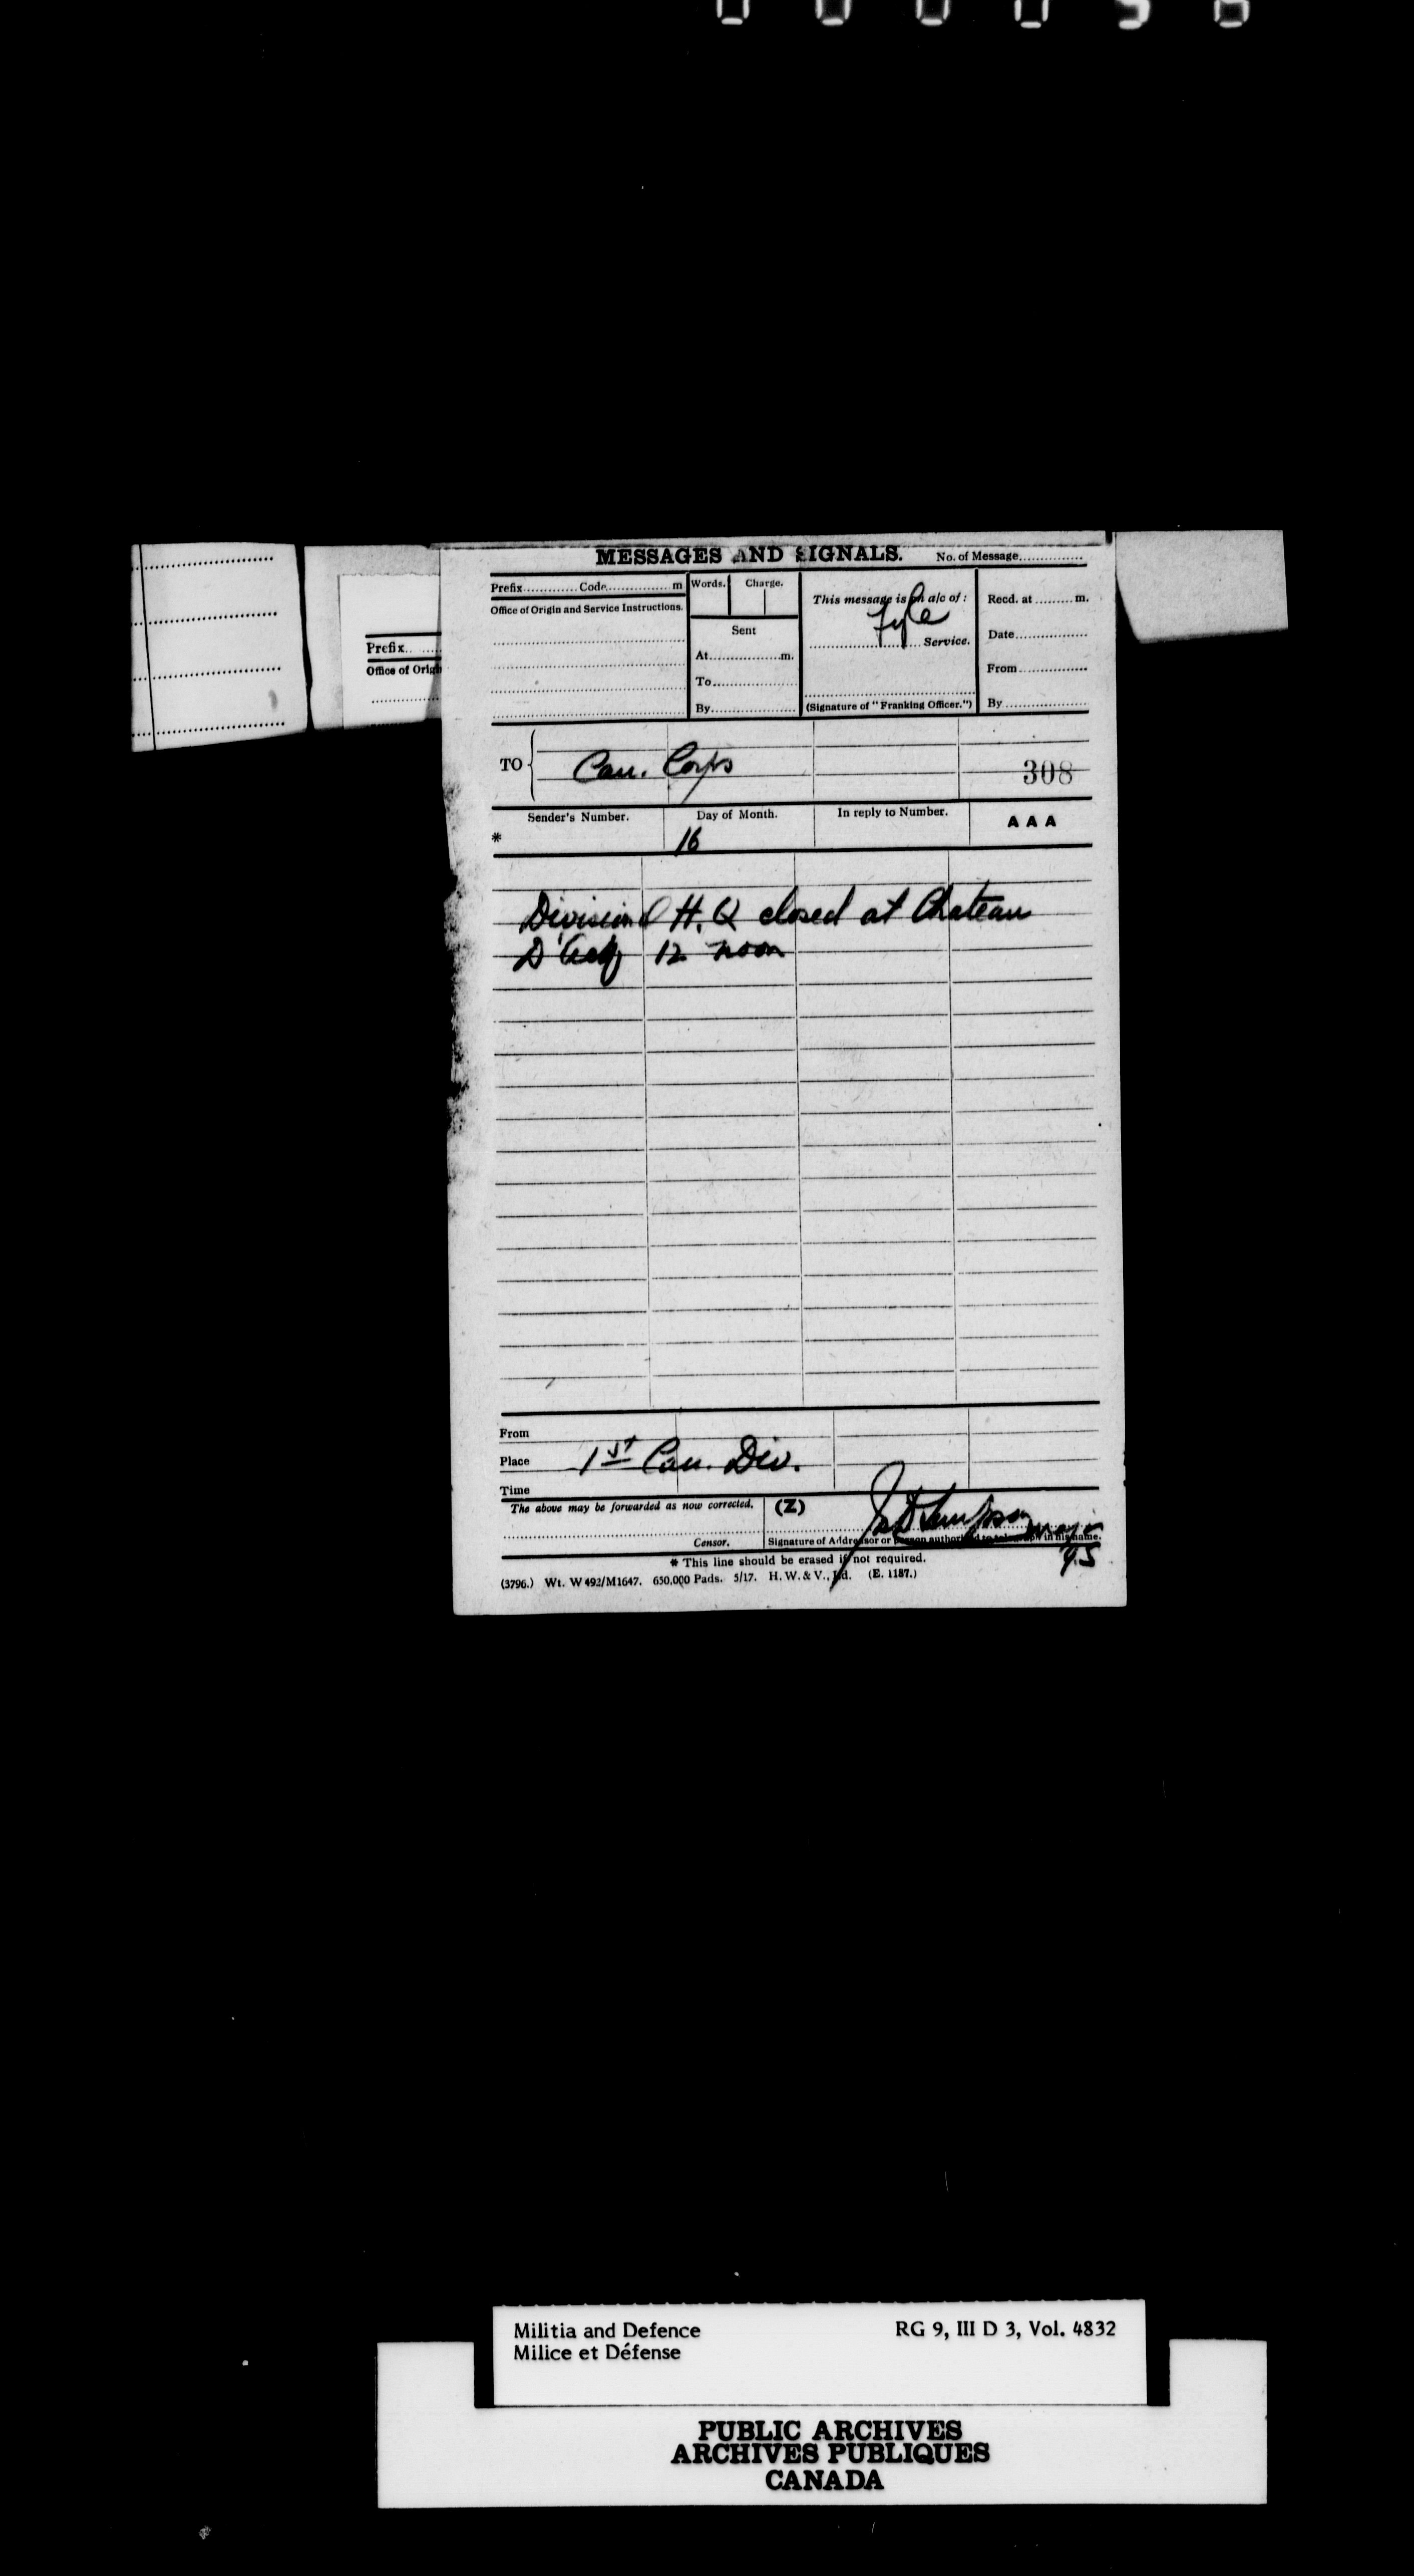 MESSAGES AND SIGNALS. No. of Message...............
Prefix............. Code................ m
Words. Charge.
This message is on a/c of:
Fyle
.......................... Service.
Recd. at ......... m.
Office of Origin and Service Instructions.
Sent
At................m.
To...................
By...................
(Signature of "Franking Officer.")
Date................
From................
By ..................
Prefix.. .....
Office of Orig
TO { Can. Corps
308
Sender's Number. Day of Month. In reply to Number. A A A
* 16
Divisional H.Q closed at Chateau
D'Acq 12 noon
From
Place 1st Can. Div.
Time
The above may be forwarded as now corrected. (Z)
Censor. Signature of Addressor or person authorised to telegraph in his name.
Major
GS
* This line should be erased if not required.
(3796.) Wt. W492/M1647. 650,000 Pads. 5/17. H. W. & V., Ld. (E. 1187.)
Militia and Defence RG 9, III D 3, Vol. 4832
Milice et Défense
PUBLIC ARCHIVES
ARCHIVES PUBLIQUES
CANADA